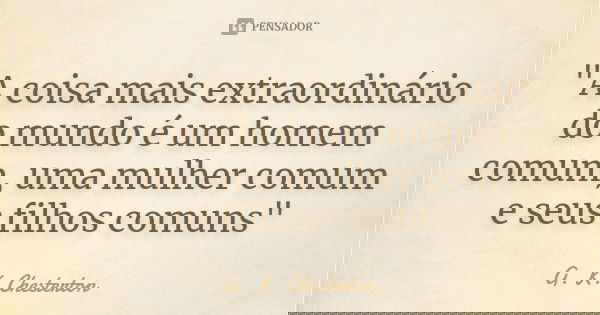 PENSADOR
"A coisa mais extraordinário
do mundo é um homem
comum, uma mulher comum
e seus filhos comuns"
G. K. Chesterton